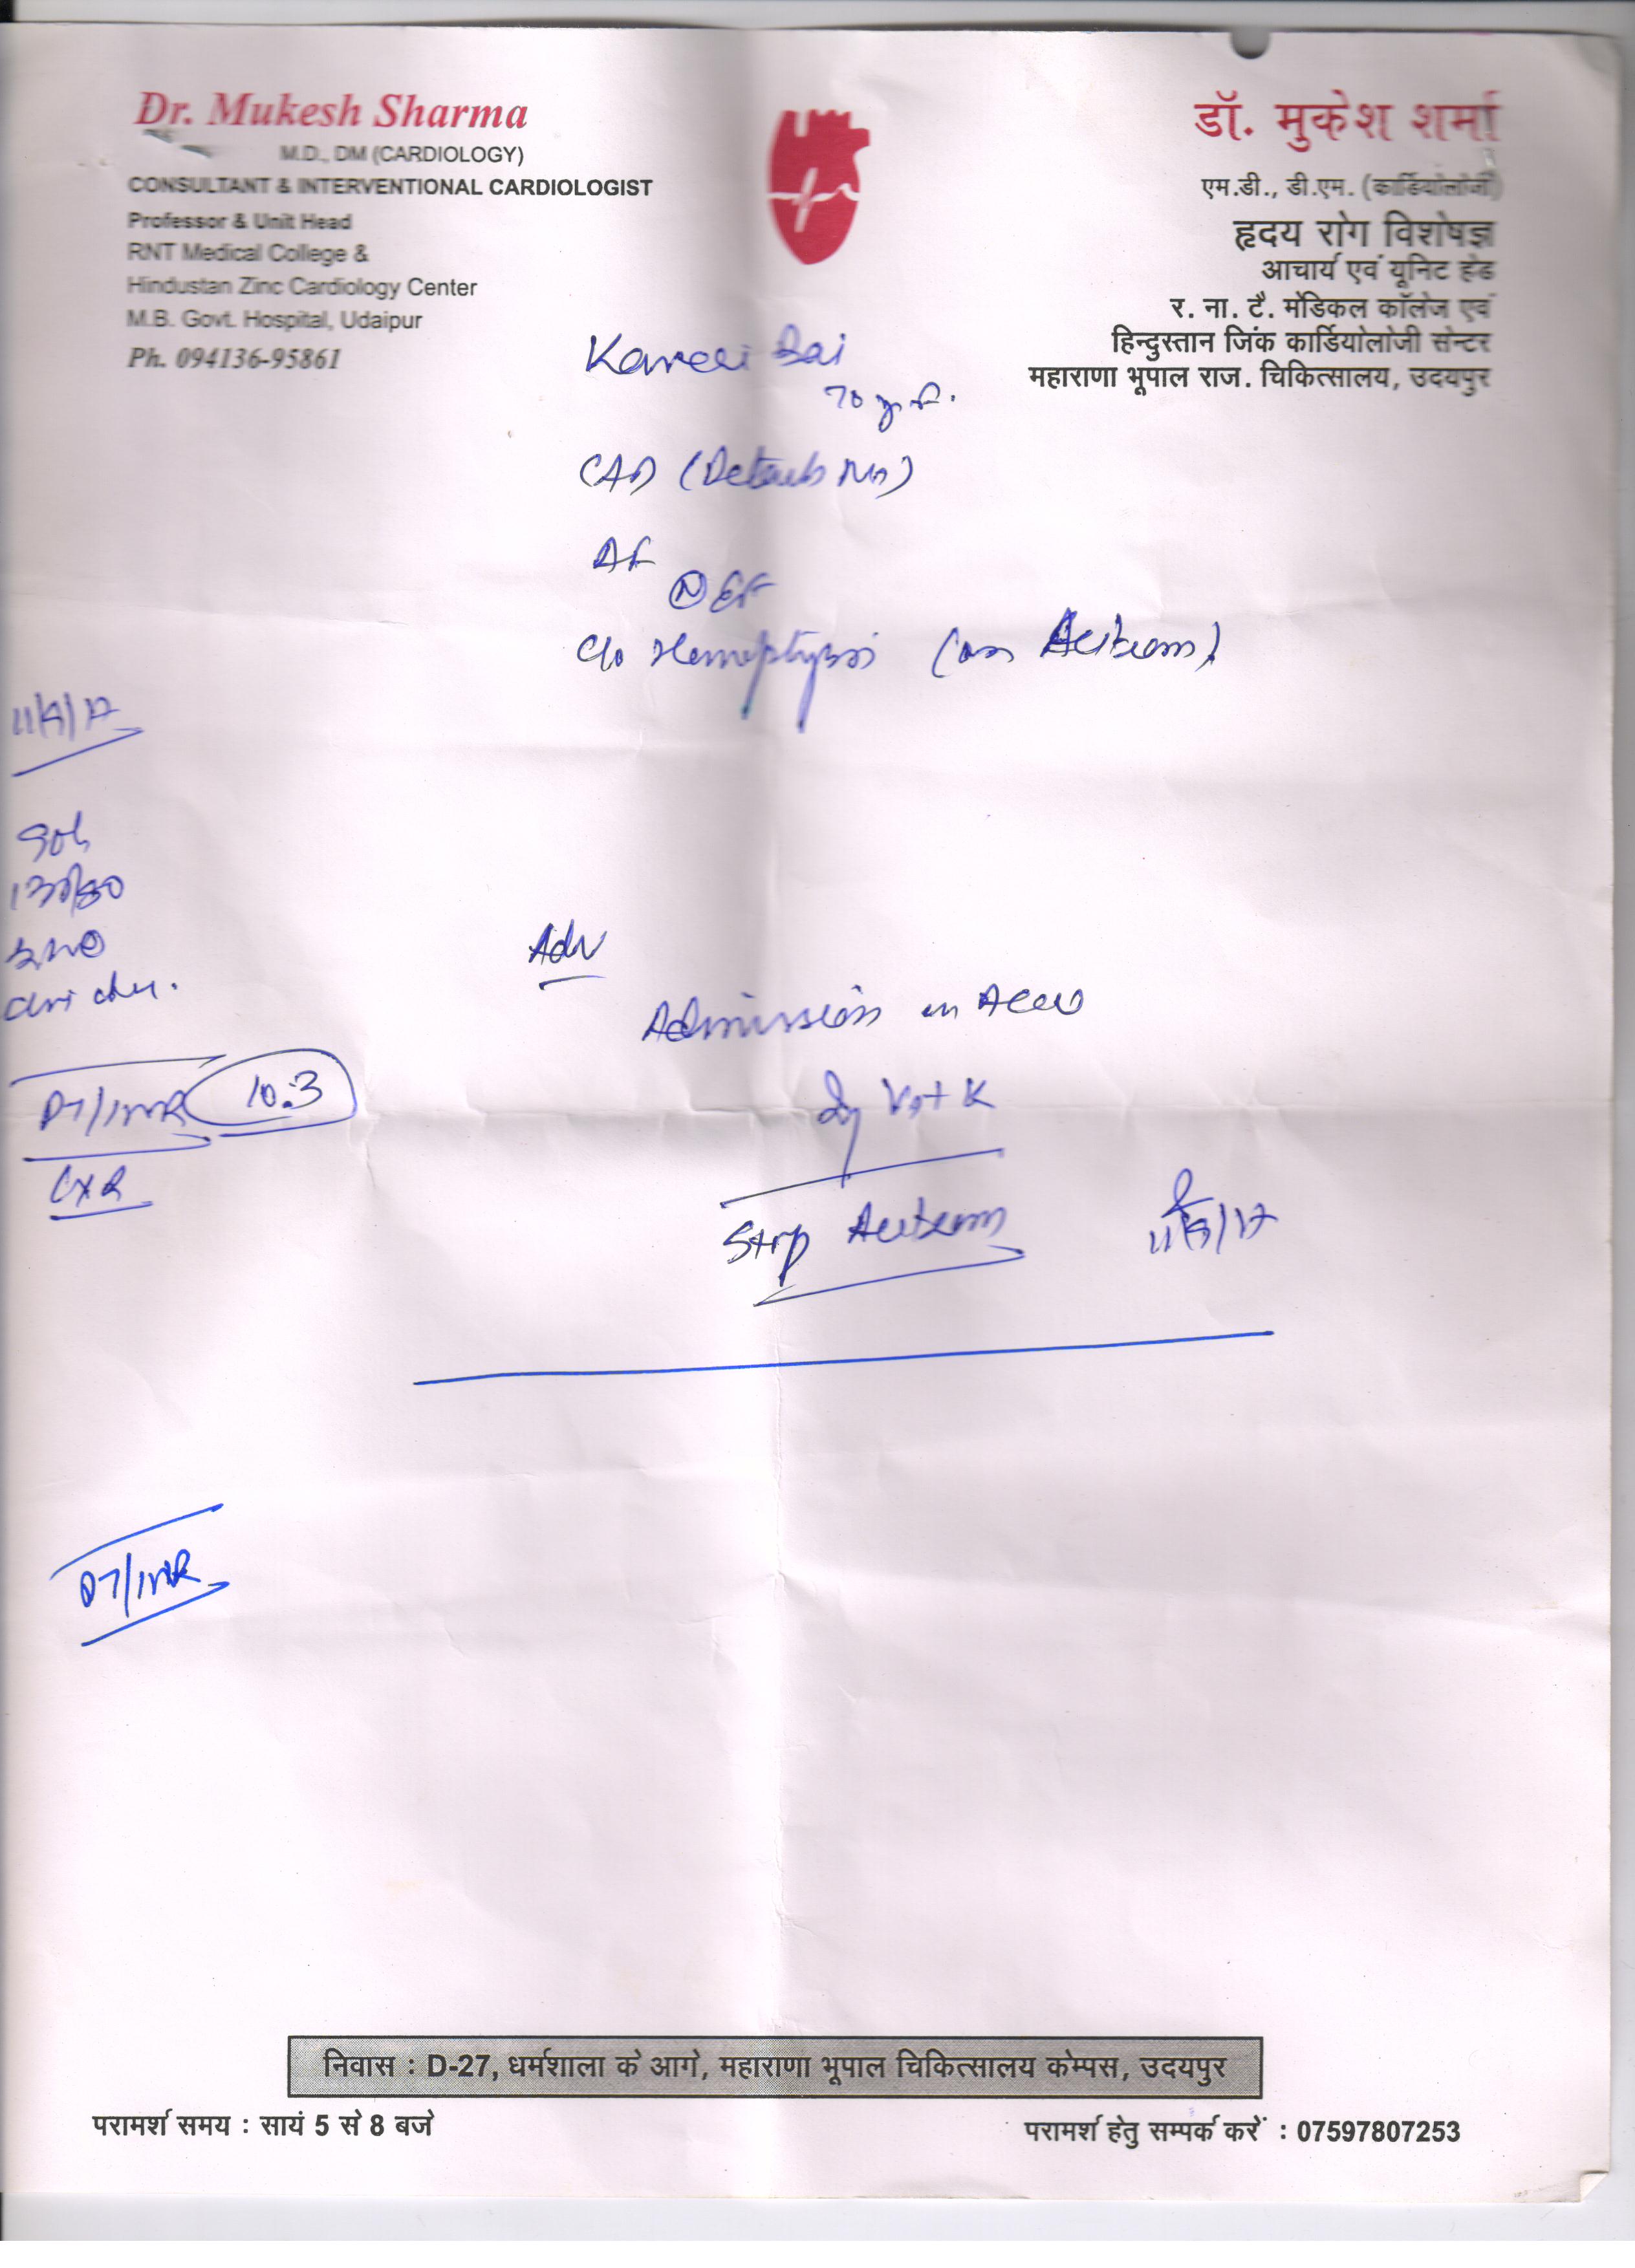 Dr. Mukesh Sharma
M.D., DM (CARDIOLOGY)
CONSULTANT & INTERVENTIONAL CARDIOLOGIST
Professor & Unit Head
RNT Medical College &
Hindustan Zinc Cardiology Center
M.B. Govt. Hospital, Udaipur
Ph. 094136-95861
डॉ. मुकेश शर्मा
एम.डी., डी.एम. (कार्डियोलोजी)
हृदय रोग विशेषज्ञ
आचार्य एवं यूनिट हेड
र. ना. टै. मेडिकल कॉलेज एवं
हिन्दुस्तान जिंक कार्डियोलोजी सेन्टर
महाराणा भूपाल राज. चिकित्सालय, उदयपुर
Bai
70 yr F.
CAD (Details No)
AF
(N) EF
C/o Hemoptysis (on Acitrom)
SOB
130/80
PT/INR 10.3
CXR
Adv
Admission in
Inj Vit K
Stop Acitrom
PT/INR
निवास : D-27, धर्मशाला के आगे, महाराणा भूपाल चिकित्सालय केम्पस, उदयपुर
परामर्श समय : सायं 5 से 8 बजे
परामर्श हेतु सम्पर्क करें : 07597807253